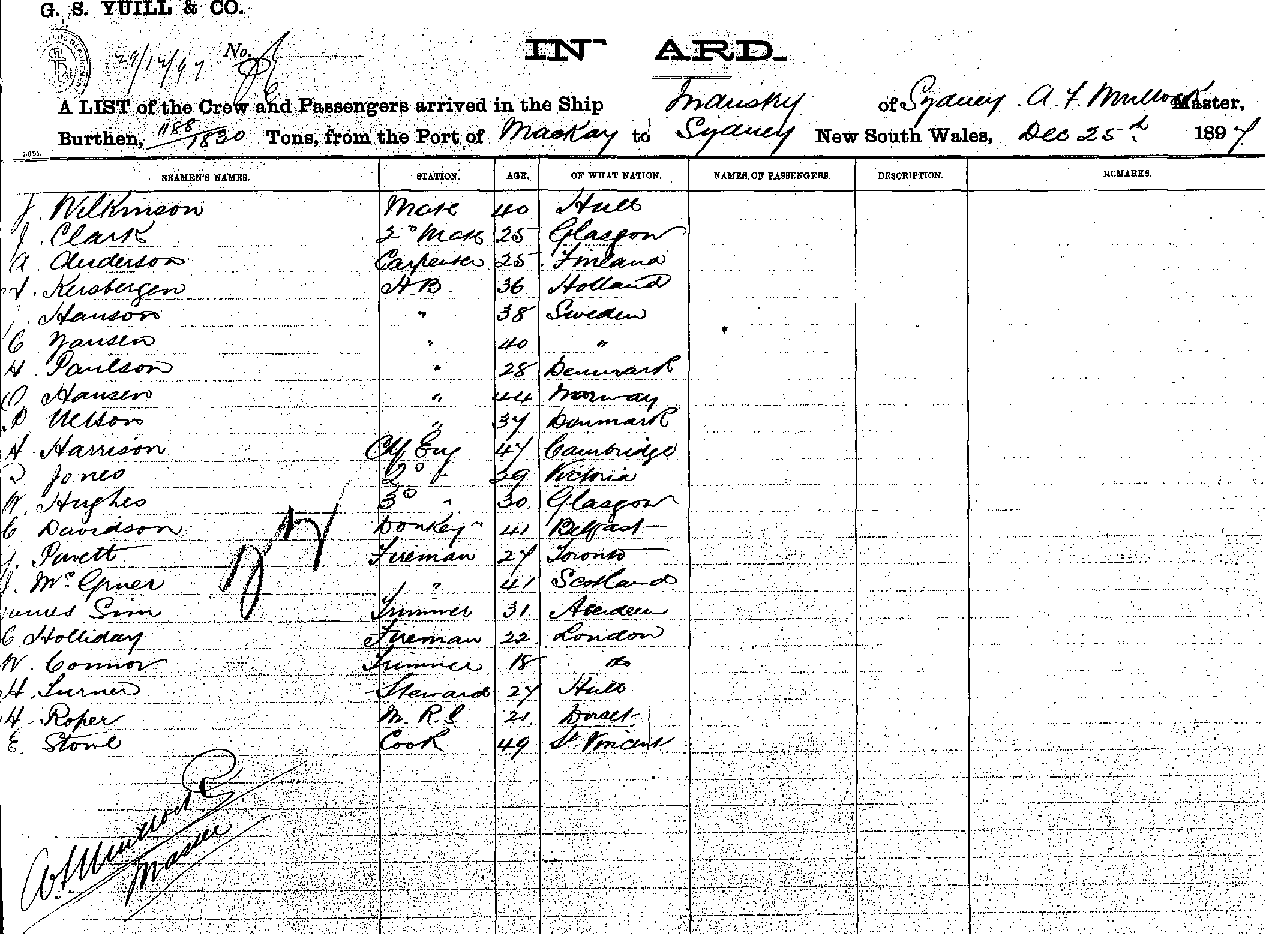 G. S. YUILL & CO.
INWARD.
29/12/97 No.
A LIST of the Crew and Passengers arrived in the Ship Industry of Sydney A. F. Mullock Master,
Burthen, 1188/1830 Tons, from the Port of Mackay to Sydney New South Wales, Dec 25th 1897
SEAMEN'S NAMES. STATION. AGE. OF WHAT NATION. NAMES OF PASSENGERS. DESCRIPTION. REMARKS.
J. Wilkinson Mate 40 Hull
J. Clark 2° Mate 25 Glasgow
A Anderson Carpenter 25 Finland
Kersbergen A B 36 Holland
Hanson " 38 Sweden
C Jansen " 40 "
H. Paulson " 28 Denmark
O Hansen " 44 Norway
P Nelson " 37 Denmark
H Harrison Chf Eng 47 Cambridge
Jones 2° " 29 Victoria
W. Hughes 3° " 30 Glasgow
C Davidson Donkey " 41 Belfast
J. Pavett Fireman 27 Toronto
J. " 41 Scotland
James Sim Trimmer 31 Aberdeen
C Holliday Fireman 22 London
W. Connor Trimmer 18 do
H. Turner Steward 27 Hull
H. Roper M. R. S 21 Dorset
E. Stowe Cook 49 St Vincent
A. F. Mullock
Master